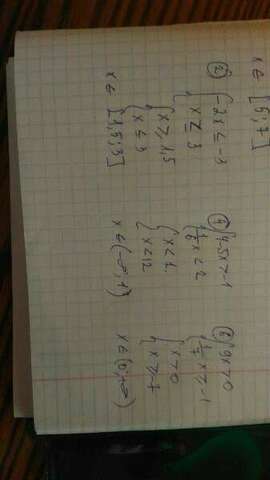 x ∈ [5; 7]
② { -2x ≤ -3
x ≤ 3
{ x ≥ 1,5
x ≤ 3
x ∈ [1,5; 3]
④ { 4-5x > -1
1/6 x < 2
{ x < 1
x < 12
x ∈ (-∞; 1)
⑥ { 9x > 0
1/7 x > -1
{ x > 0
x > -7
x ∈ (0; +∞)